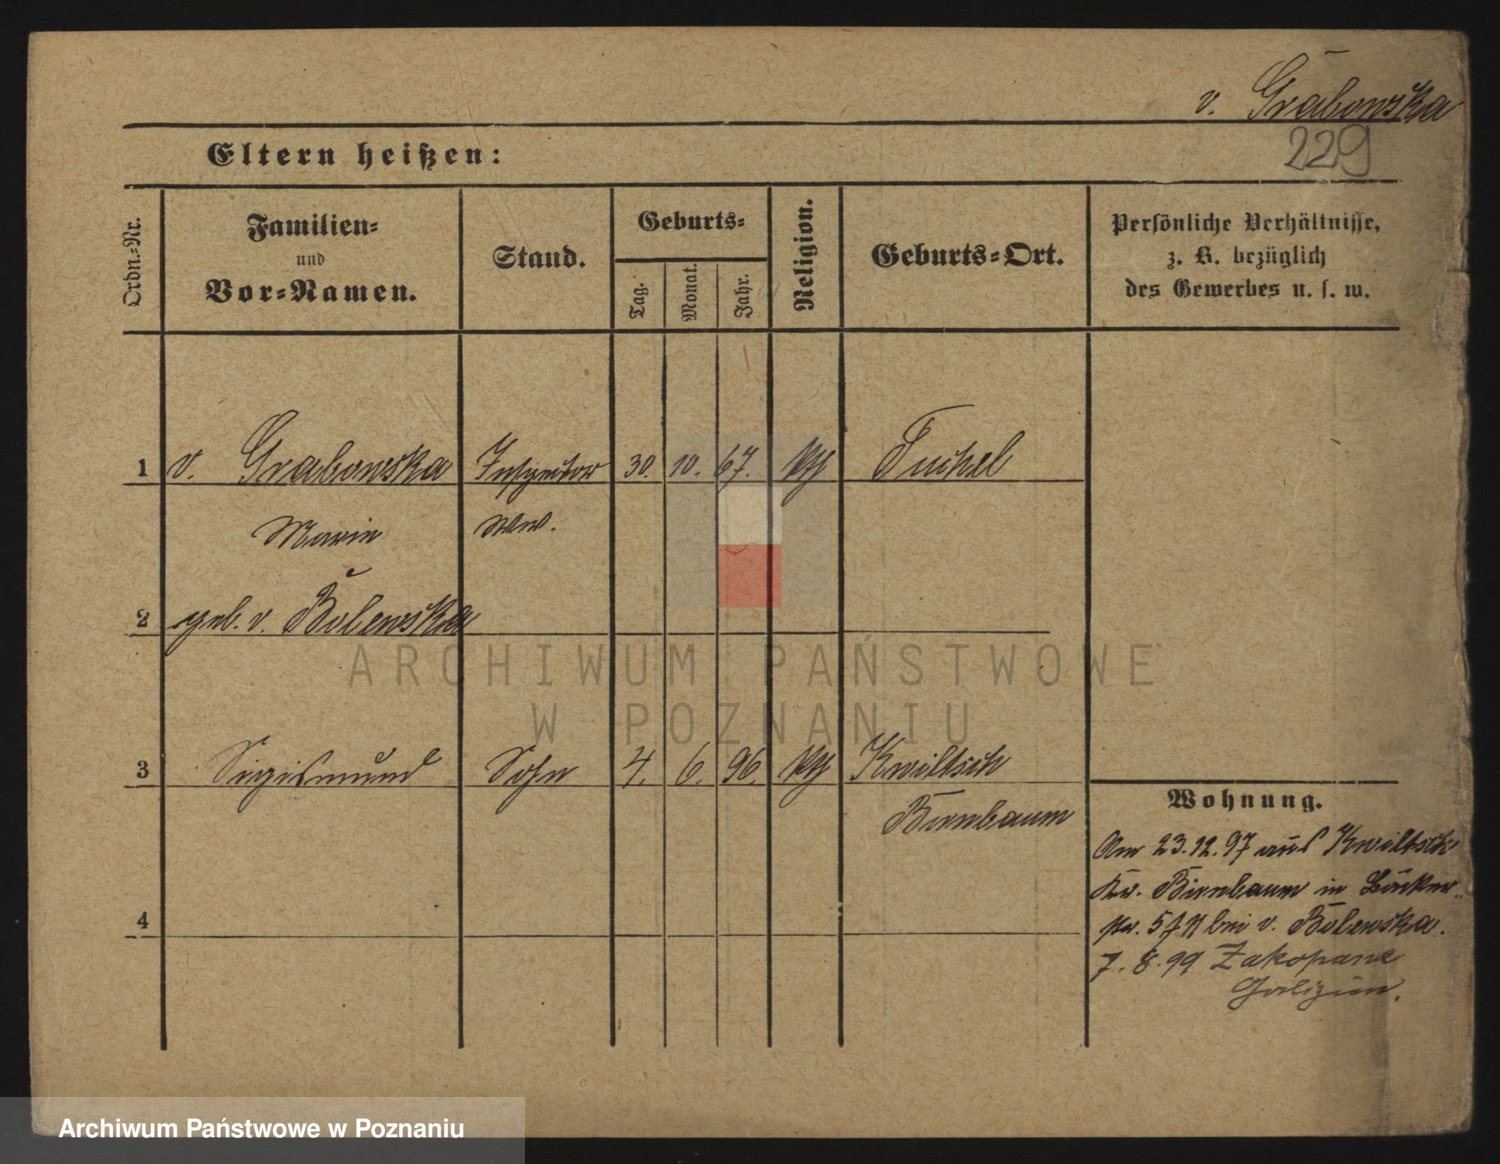 v. Grabowska
229
Eltern heißen:
Ordn.-Nr.
Familien-
und
Vor-Namen.
Stand.
Geburts-
Tag.
Monat.
Jahr.
Religion.
Geburts-Ort.
Persönliche Verhältnisse,
z. B. bezüglich
des Gewerbes u. s. w.
1 v. Grabowska Inspektor 30. 10. 67. Tuchel
Marie Ww.
2 geb. v. Bolewska
3 Sigismund Sohn 4. 6. 96. Kwiltsch
Birnbaum
4
Wohnung.
Am 23.12.97 aus Kwiltsch
Kr. Birnbaum in Bäcker-
str. bei v. Bolewska.
7. 8. 99 Zakopane
Galizien.
ARCHIWUM PAŃSTWOWE
W POZNANIU
Archiwum Państwowe w Poznaniu